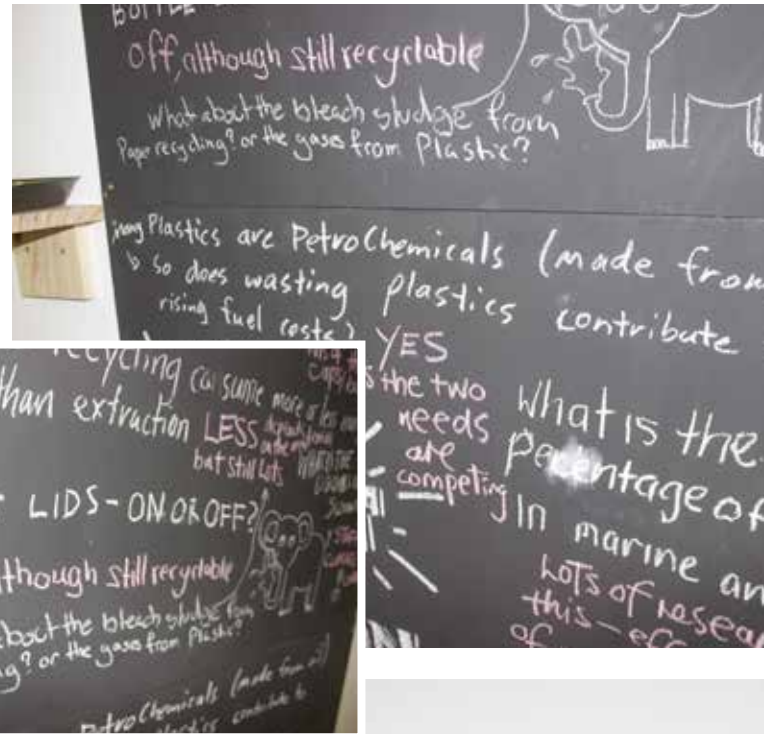 BOTTLE
Off, although still recyclable
What about the bleach sludge from
Paper recycling? or the gases from Plastic?
many Plastics are PetroChemicals (made from
so does wasting plastics contribute
rising fuel costs?
YES
the two
needs
are
competing
What is the
percentage of
in marine an
LOTS of resear
this - eff
of
recycling can sumie more or less
than extraction LESS
but still lots
LIDS - ON OR OFF?
though still recyclable
about the bleach sludge from
ng? or the gases from Plastic?
PetroChemicals (made from oil)
plastics contribute to